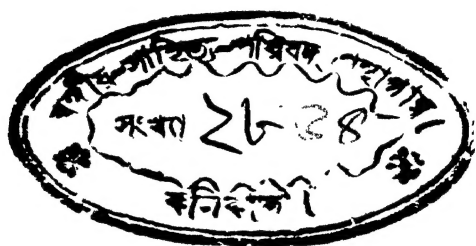 বঙ্গীয়-সাহিত্য-পরিষদ্ গ্রন্থাগার
সংখ্যা ২৮৩৪
কলিকাতা।